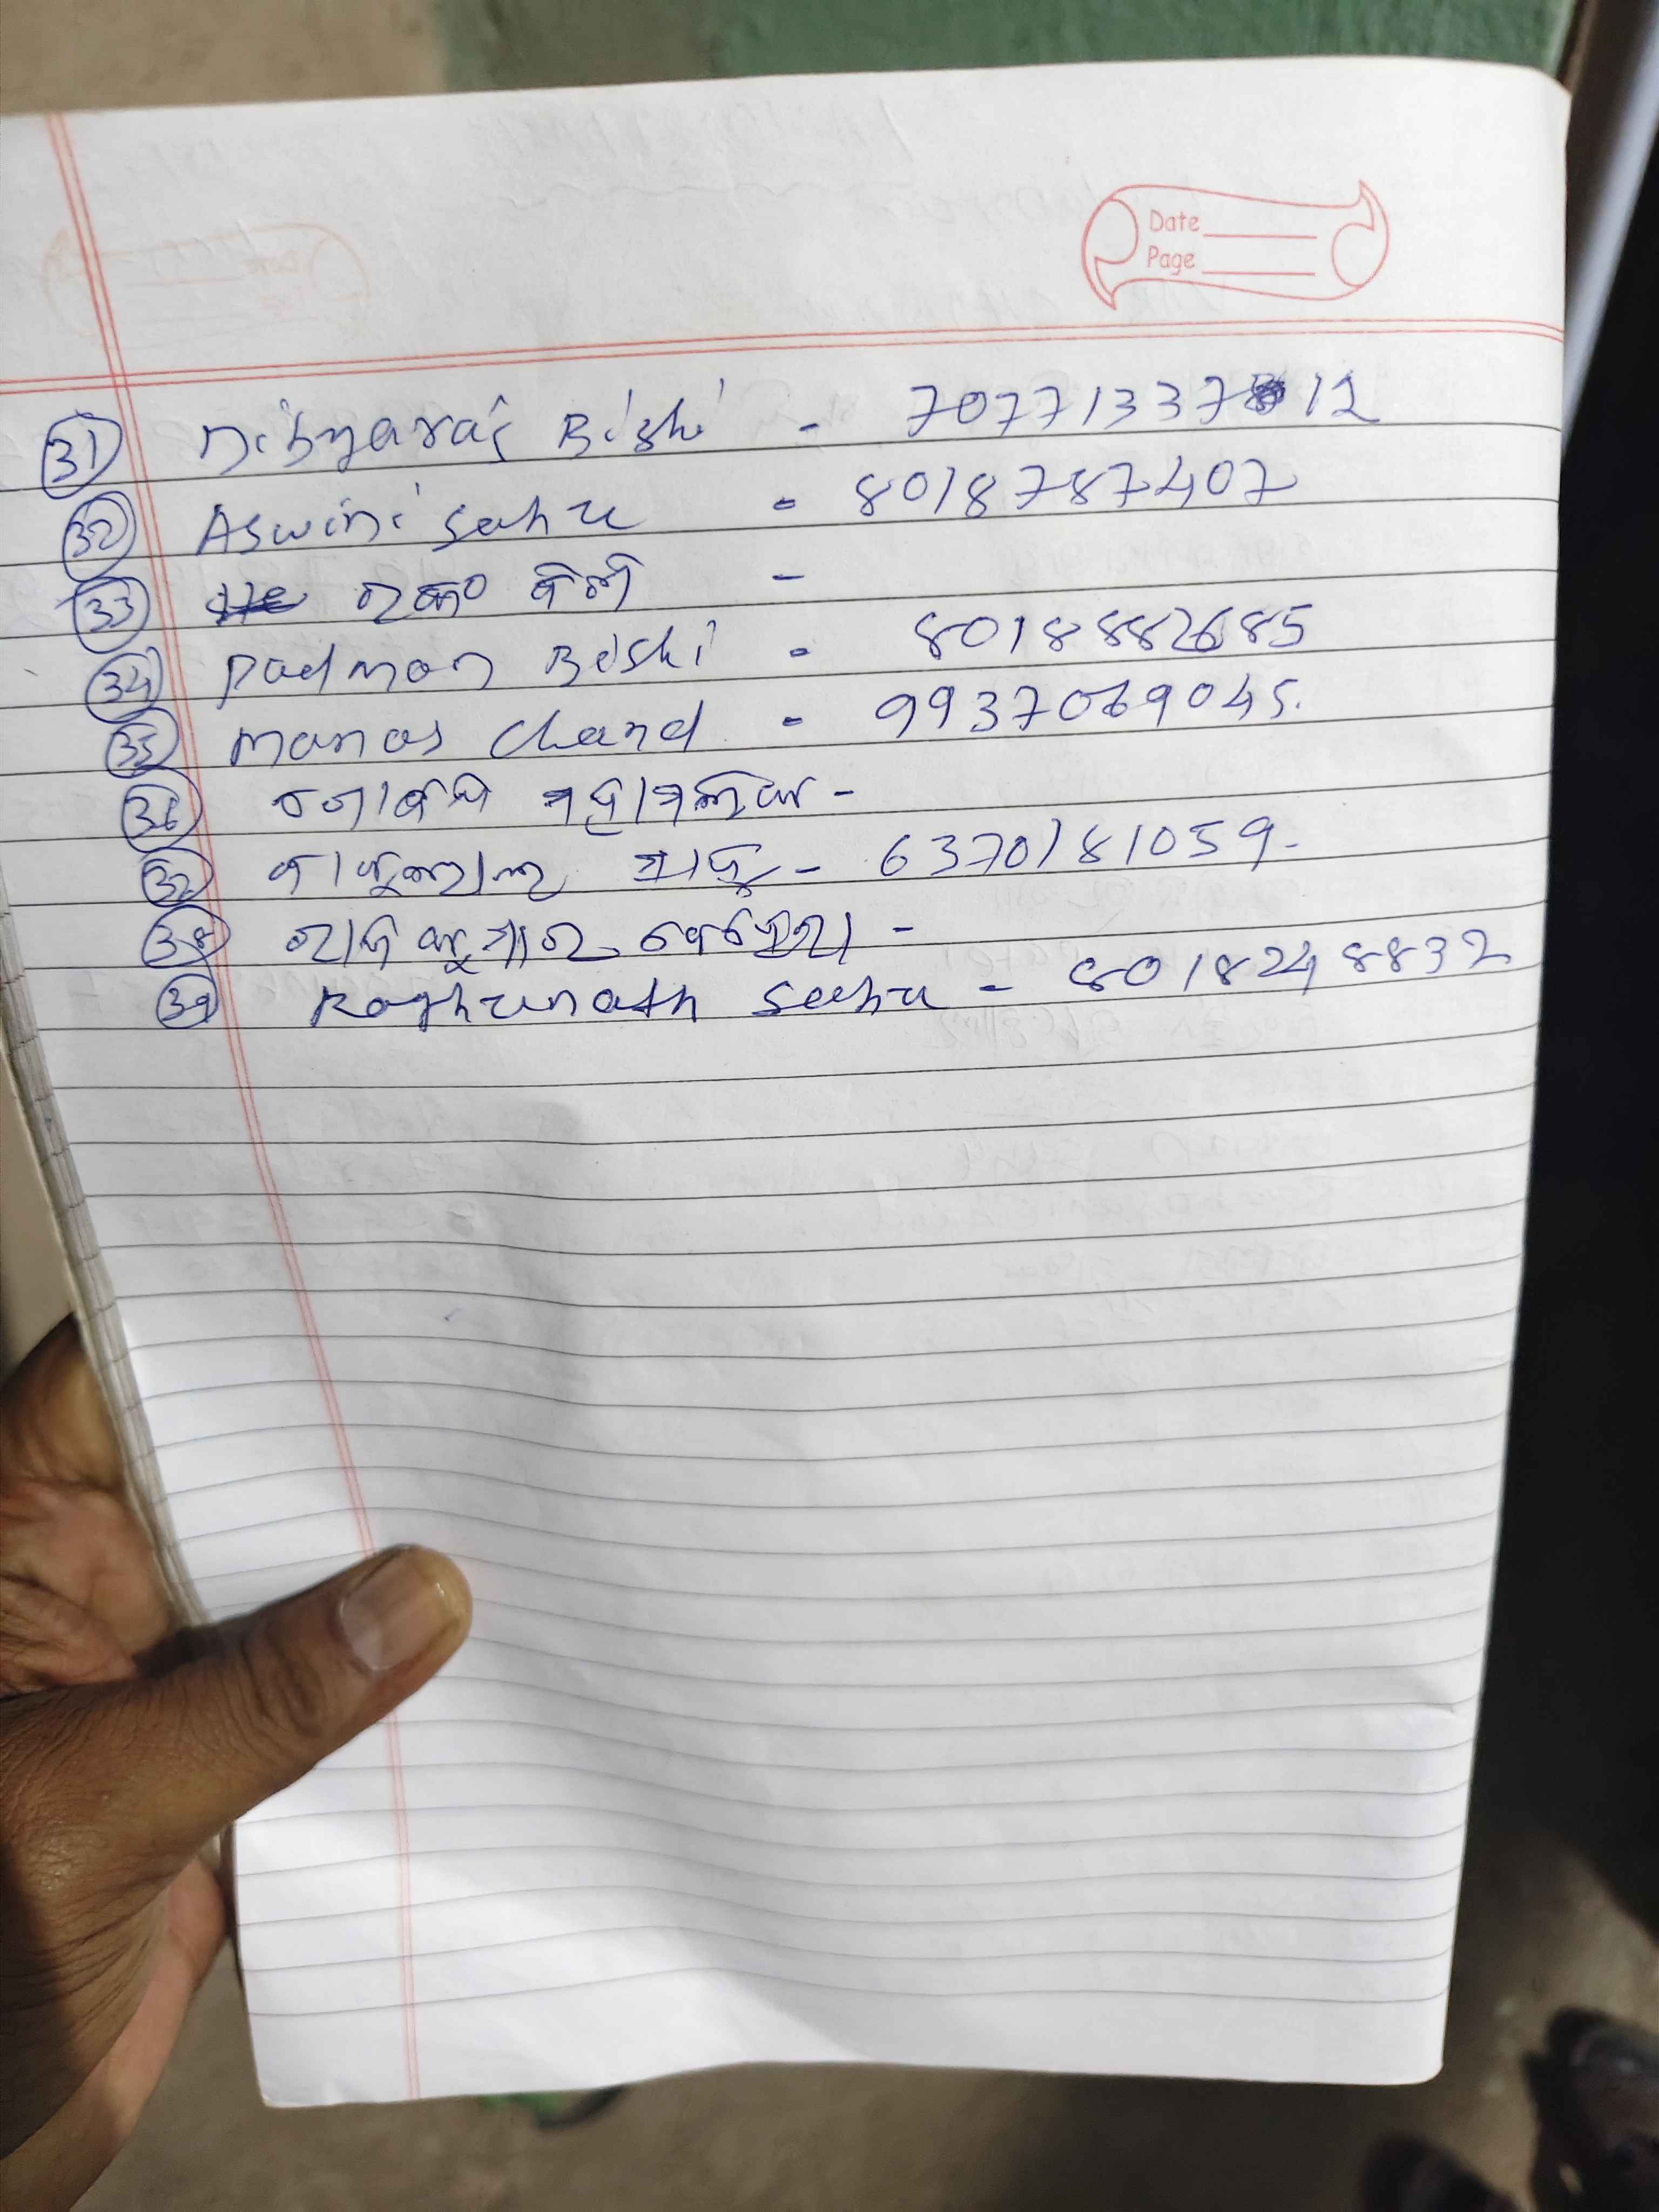 Date
Page
31 Dibyaraj Bishi - 7077133712
32 Aswini Sahu - 8018787407
33 -
34 Padman Bishi - 8018882685
35 Manas Chand - 9937069045.
36 ଗୋବିନ୍ଦ ମହାମଲିକ -
37 ବାବୁଲାଲ ସାହୁ - 6370181059.
38 ରାଜ କୁମାର ବେହେରା -
39 Raghunath Sahu - 8018248832